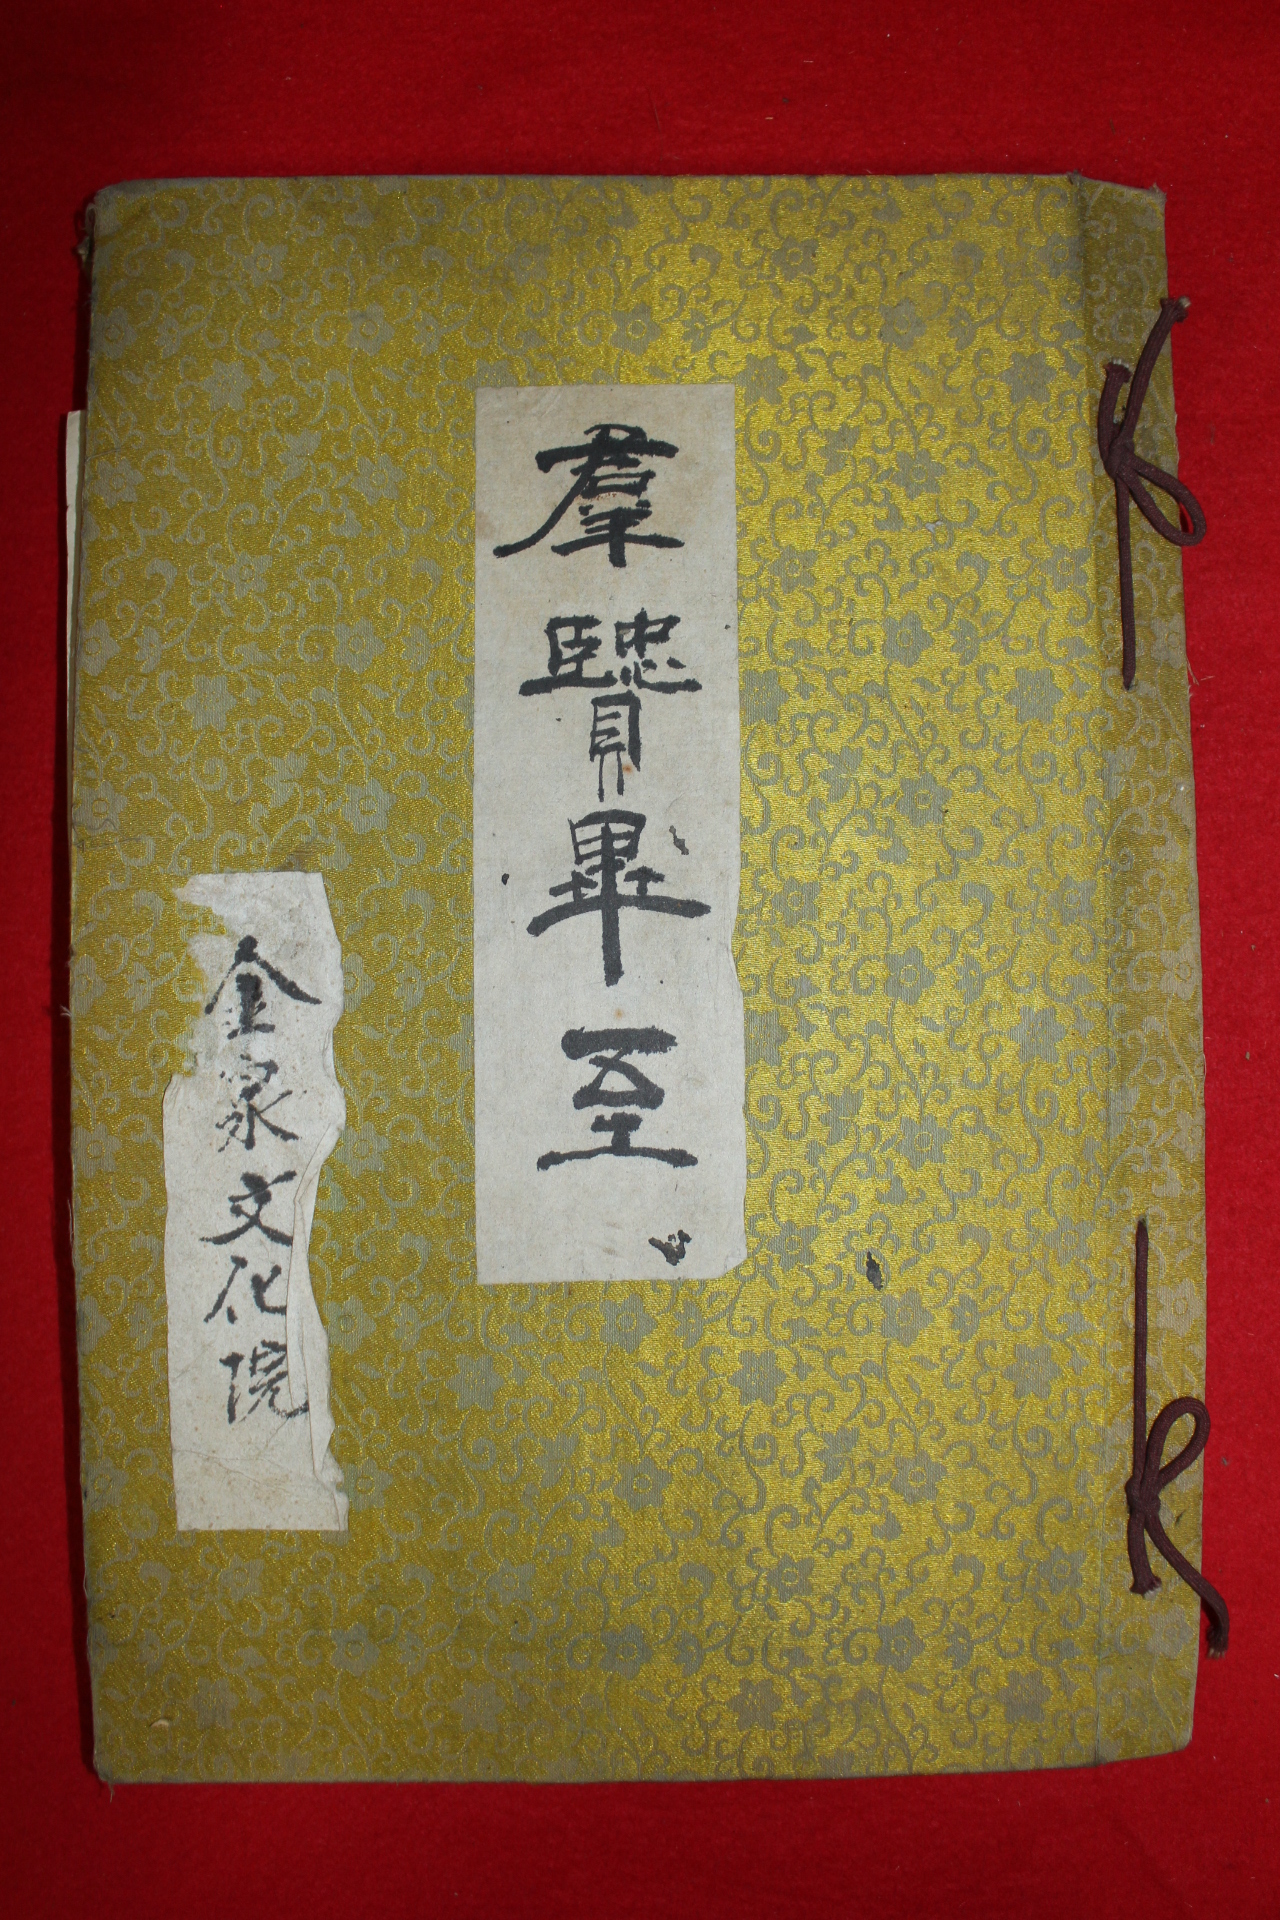 羣贒畢至
金泉文化院